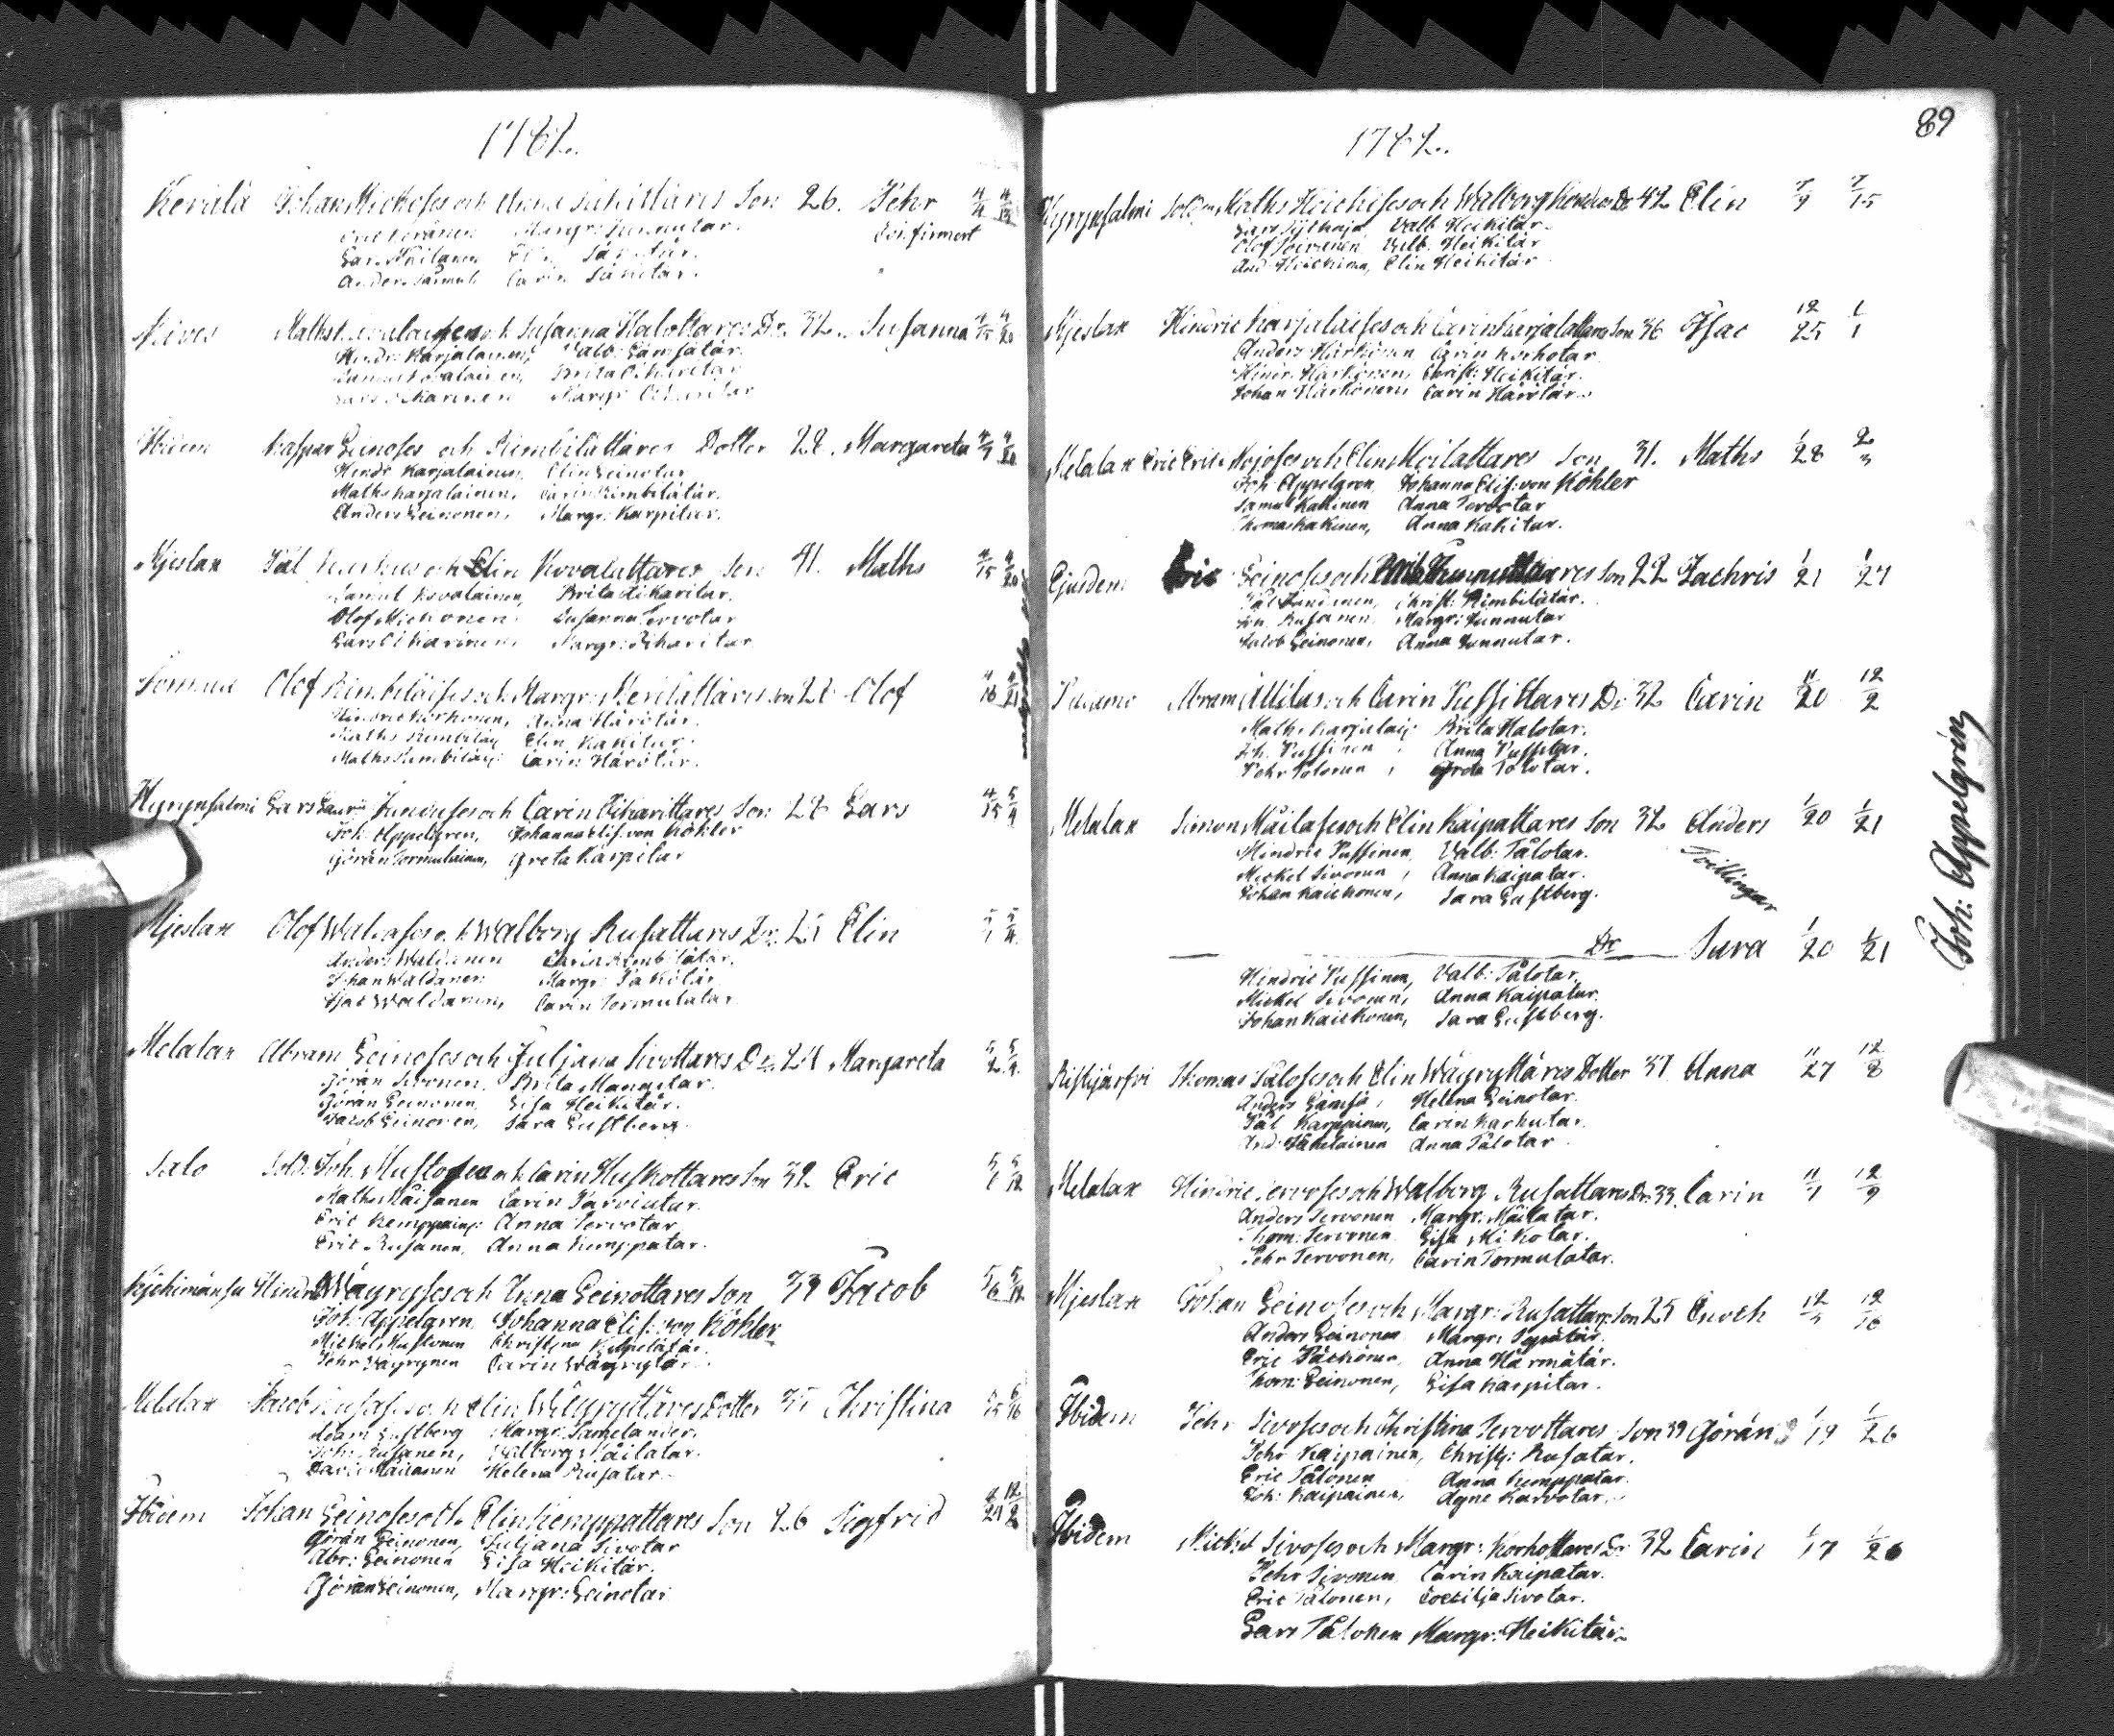 1782.
Kerälä Johan Mickoses och Anna Säkittäres Son 26. Pehr 4/4 4/13
Eric Keränen Margr: Junnutar. Confirmert
Lars Mäilanen Elin Säkitär.
Anders Särmult Carin Säkitär.
Nives Maths Kovalaises och Susanna Halottares Dr. 32. Susanna 4/15 4/20
Hindr: Karjalainen, Valb: Lämsätär.
Samuel Kovalainen, Brita Pikaritar
Lars Pikarinen Margr: Pikaritar
Ibidem Kaspar Leinoses och Rimbilättäres Dotter 28. Margareta 4/7 4/20
Hindr Karjalainen, Elin Leinotar
Maths Karjalainen, Carin Rimbilätär.
Anders Leinonen, Margr: Karpitar.
Mjeslax Pål Karhus och Elin Kovalattares Son 41. Maths 4/15 4/20
Samuel Kovalainen, Brita Pikaritar.
Olof Michonen Susanna Tervotar
Lars Pikarinen, Margr: Pikaritar
Tormua Olof Rimbiläises och Margr: Keritättäres Son 28 Olof 4/16 4/21
Hindric Korhonen, Anna Härötär.
Maths Rimbiläi: Elin Kakitar.
Maths Rimbiläi: Carin Härötär.
Hyrynsalmi Lars Lauri Junduses och Carin Pikarittares Son 28 Lars 4/15 5/4
Joh: Appelgren, Johanna Elis: von Köhler
Göran Tormulainen, Greta Karpitar
Mjeslax Olof Waldases och Walborg Rusattares Dr. 25 Elin 5/1 5/4
Anders Waldanen Carin Rimbilätär.
Johan Waldanen Margr: Säkitär
Isac Waldanen, Carin Tormulatar
Melalax Abram Leinoses och Juliana Sivottares Dr. 24 Margareta 5/2 5/9
Göran Sivonen, Brita Mangitar.
Göran Leinonen, Lisa Heikitär.
Jacob Leinonen, Sara Luftberg.
Salo Sold: Joh. Mustoses och Carin Huskottares Son 32 Eric 5/1 5/12
Maths Räisänen Carin Parviutar.
Eric Kemppain: Anna Tervotar
Eric Rusanen, Anna Kemppatar.
Kjehimänsu Hindric Wäyryses och Anna Leinottares Son 39 Jacob 5/6 5/12
Joh: Appelgren Johanna Elis: von Köhler
Mickel Kustonen Christina Kilpelätär
Pehr Väyrynen Carin Wäyrytär
Melalax Jacob Rusases och Elin Wäyryttäres Dotter 35 Christina 5/15 6/16
Adam Luftberg Margr: Samelander.
Joh: Rusanen, Walborg Mäilatar.
David Mäilanen Helena Rusatar.
Ibidem Johan Leinoses och Elin Kemppattares Son 26 Sigfrid 2/21 12/2
Göran Leinonen, Juliana Sivotar
Abr: Leinonen Lisa Heikitär.
Göran Leinonen, Margr: Leinotar
89
1782.
Hyrynsalmi Soldn Maths Heickises och Walborg Keräläs Dr 42 Elin 7/9 7/15
Lars Syltkaja Valb Heikitär.
Olof Soivanen Valb. Heikitär
And: Heickinen, Elin Heikitär
Mjeslax Hindric Karjalaises och Carin Karjalattares Son 36 Isac 12/25 1/1
Anders Härkönen Carin Korhotar
Hindr: Härkönen, Christ: Heikitär.
Johan Härkönen, Carin Härötär.
Melalax Eric Erics Mojoses och Elin Meilattares Son 31. Maths 1/28 2/3
Joh: Appelgren Johanna Elis: von Köhler
Samu Kakinen Anna Tervotar
Thomas Kakinen, Anna Kakitar.
Ejusdem Eric Leinoses och Brit: Junnuttares Son 22 Zachris 1/21 1/27
Pål Junninen, Christ: Rimbilätär.
Joh: Rusanen Margr: Junnutar
Jacob Leinonen, Anna Junnutar.
Paldamo Abram Attilas och Carin Pussittares Dr 32 Carin 11/20 12/2
Maths Karjalai: Brita Halotar.
Joh. Pussinen, Anna Pussitar.
Pehr Polonen, Greta Polotar.
Melalax Simon Mäilases och Elin Kaipattares Son 32 Anders 1/20 1/21
Hindric Pussinen, Valb: Tålotar.
Mickel Sivonen, Anna Kaipatar.
Johan Kaickonen, Sara Luftberg.
Tvillingar
Dr Sara 1/20 1/21
Hindric Pussinen, Valb: Tålotar.
Mickel Sivonen, Anna Kaipatar.
Johan Kaickonen, Sara Luftberg.
Joh: Appelgrén
Ristijärfvi Thomas Tåloses och Elin Wäyryttäres Dotter 37 Anna 11/27 12/8
Anders Lämsä, Helena Leinotar.
Pål Karppinen, Carin Karhutar.
And: Täkilainen Anna Tålotar
Melalax Hindric Tervoses och Walborg Rusattares Dr. 33. Carin 11/7 12/9
Anders Tervonen Margr: Mäilatar.
Thom: Tervonen Lisa Mikotar.
Pehr Tervonen, Carin Tormulatar.
Mjeslax Johan Leinoses och Margr: Rusattar: Son 25 Enoch 12/5 12/16
Anders Leinonen Margr: Sepätär.
Eric Päckönen Anna Härmätär.
Thom: Leinonen, Lisa Karpitar.
Ibidem Pehr Sivoses och Christina Tervottares Son 39 Göran 1/19 1/26
Pehr Kaipainen, Christ: Rusatar.
Eric Tålonen Anna Kemppatar.
Joh: Kaipainen, Agne Karvotar.
Ibidem Mickel Sivoses och Margr: Korhottares Dr 32 Carin 1/17 1/26
Pehr Sivonen Carin Kaipatar.
Eric Tålonen, Coecilja Sivotar.
Lars Tålonen Margr: Heikitär.